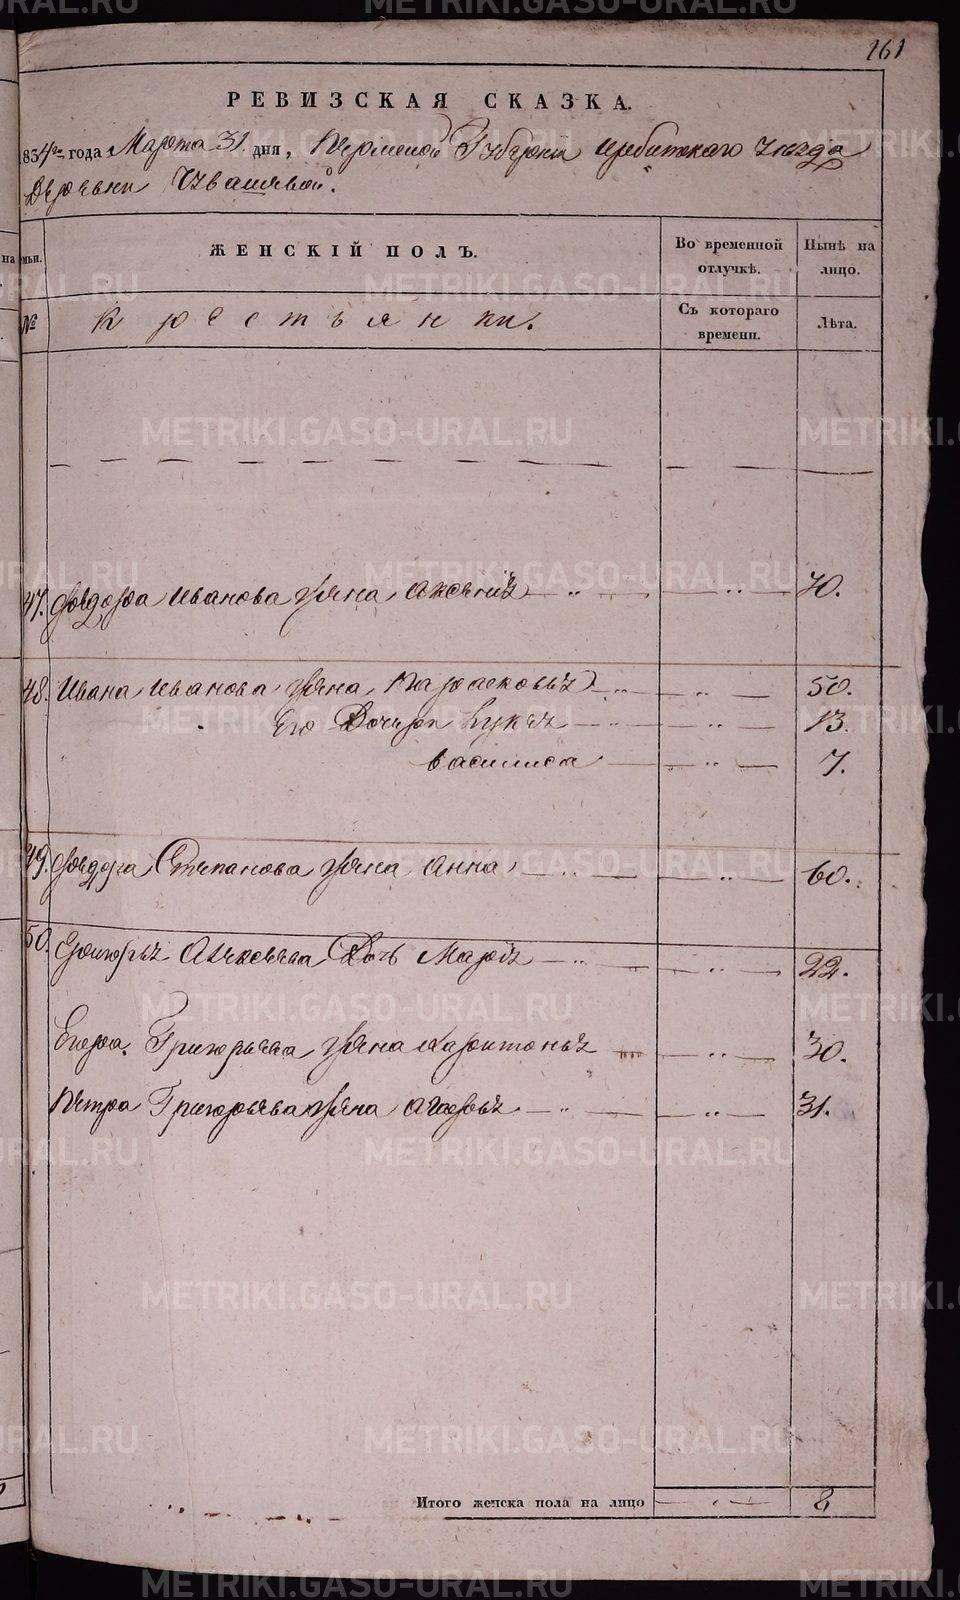 161
РЕВИЗСКАЯ СКАЗКА.
834го года Марта 31. дня, Пермской Губерніи Ирбитскаго уезда
Деревни
мьи. ЖЕНСКІЙ ПОЛЪ. Во временной отлучкѣ. Нынѣ на лицо.
№ Крестьянки. Съ котораго времени. Лѣта.
47. Федора Иванова жена 70.
48. Ивана Иванова жена 50.
Его Дочери 13.
Василиса 7.
49. Федора Степанова жена Анна 60.
50. Алексѣева Дочь 22.
Егора Григорьева жена 30.
Петра Григорьева жена 31.
Итого женска пола на лицо 8
METRIKI.GASO-URAL.RU